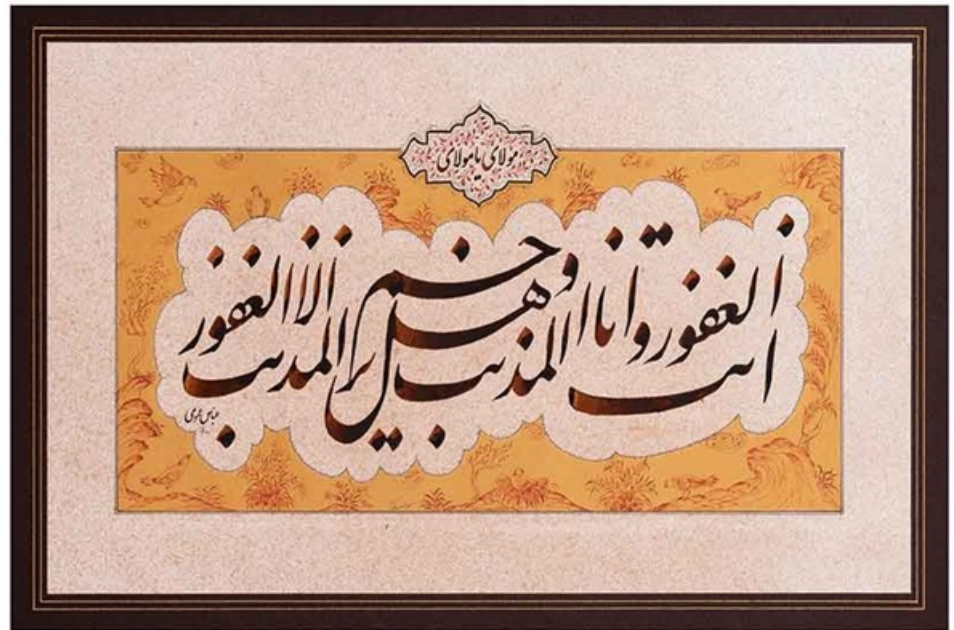 مولای یا مولای
انت الغفور و انا المذنب و هل یرحم المذنب الا الغفور